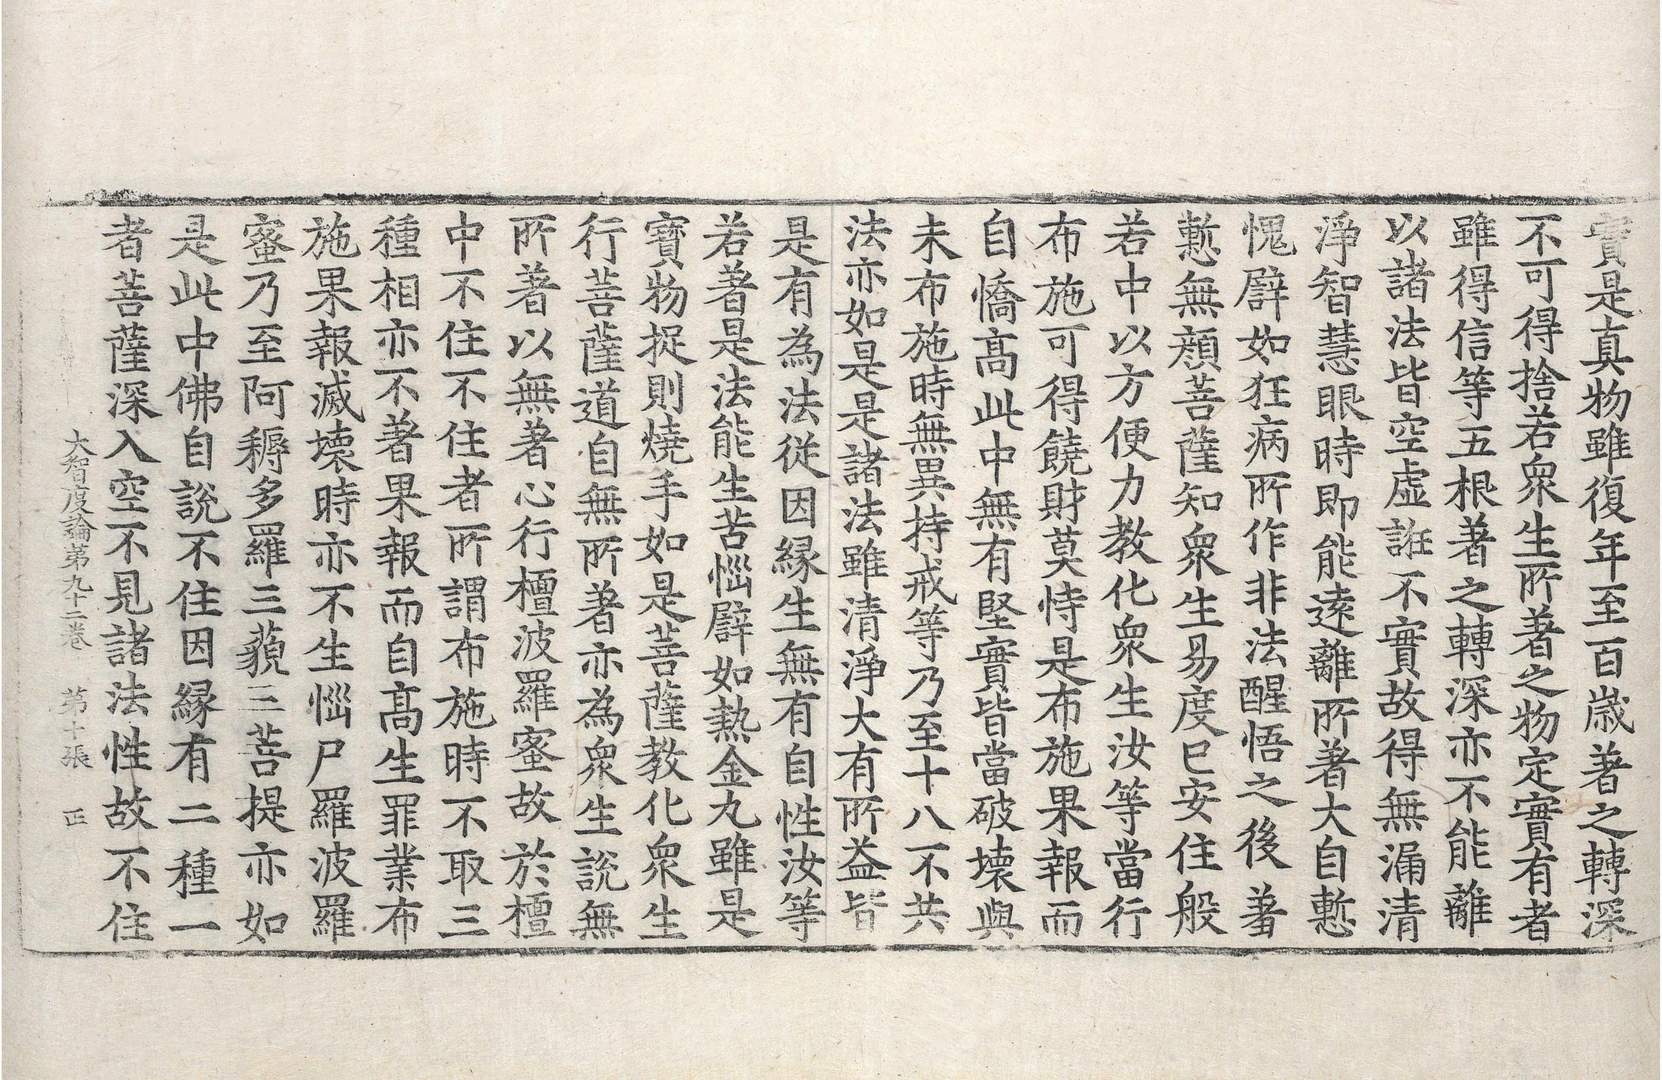 實是真物雖復年至百歲著之轉深
不可得捨若衆生所著之物定實有者
雖得信等五根著之轉深亦不能離
以諸法皆空虛誑不實故得無漏清
淨智慧眼時即能遠離所著大自慙
愧譬如狂病所作非法醒悟之後羞
慙無顔菩薩知衆生易度已安住般
若中以方便力教化衆生汝等當行
布施可得饒財莫恃是布施果報而
自憍高此中無有堅實皆當破壞與
未布施時無異持戒等乃至十八不共
法亦如是是諸法雖清淨大有所益皆
是有為法從因縁生無有自性汝等
若著是法能生苦惱譬如熱金丸雖是
寶物捉則燒手如是菩薩教化衆生
行菩薩道自無所著亦為衆生說無
所著以無著心行檀波羅蜜故於檀
中不住不住者所謂布施時不取三
種相亦不著果報而自高生罪業布
施果報滅壞時亦不生惱尸羅波羅
蜜乃至阿耨多羅三藐三菩提亦如
是此中佛自說不住因縁有二種一
者菩薩深入空不見諸法性故不住
大智度論第九十二卷　第十張　正